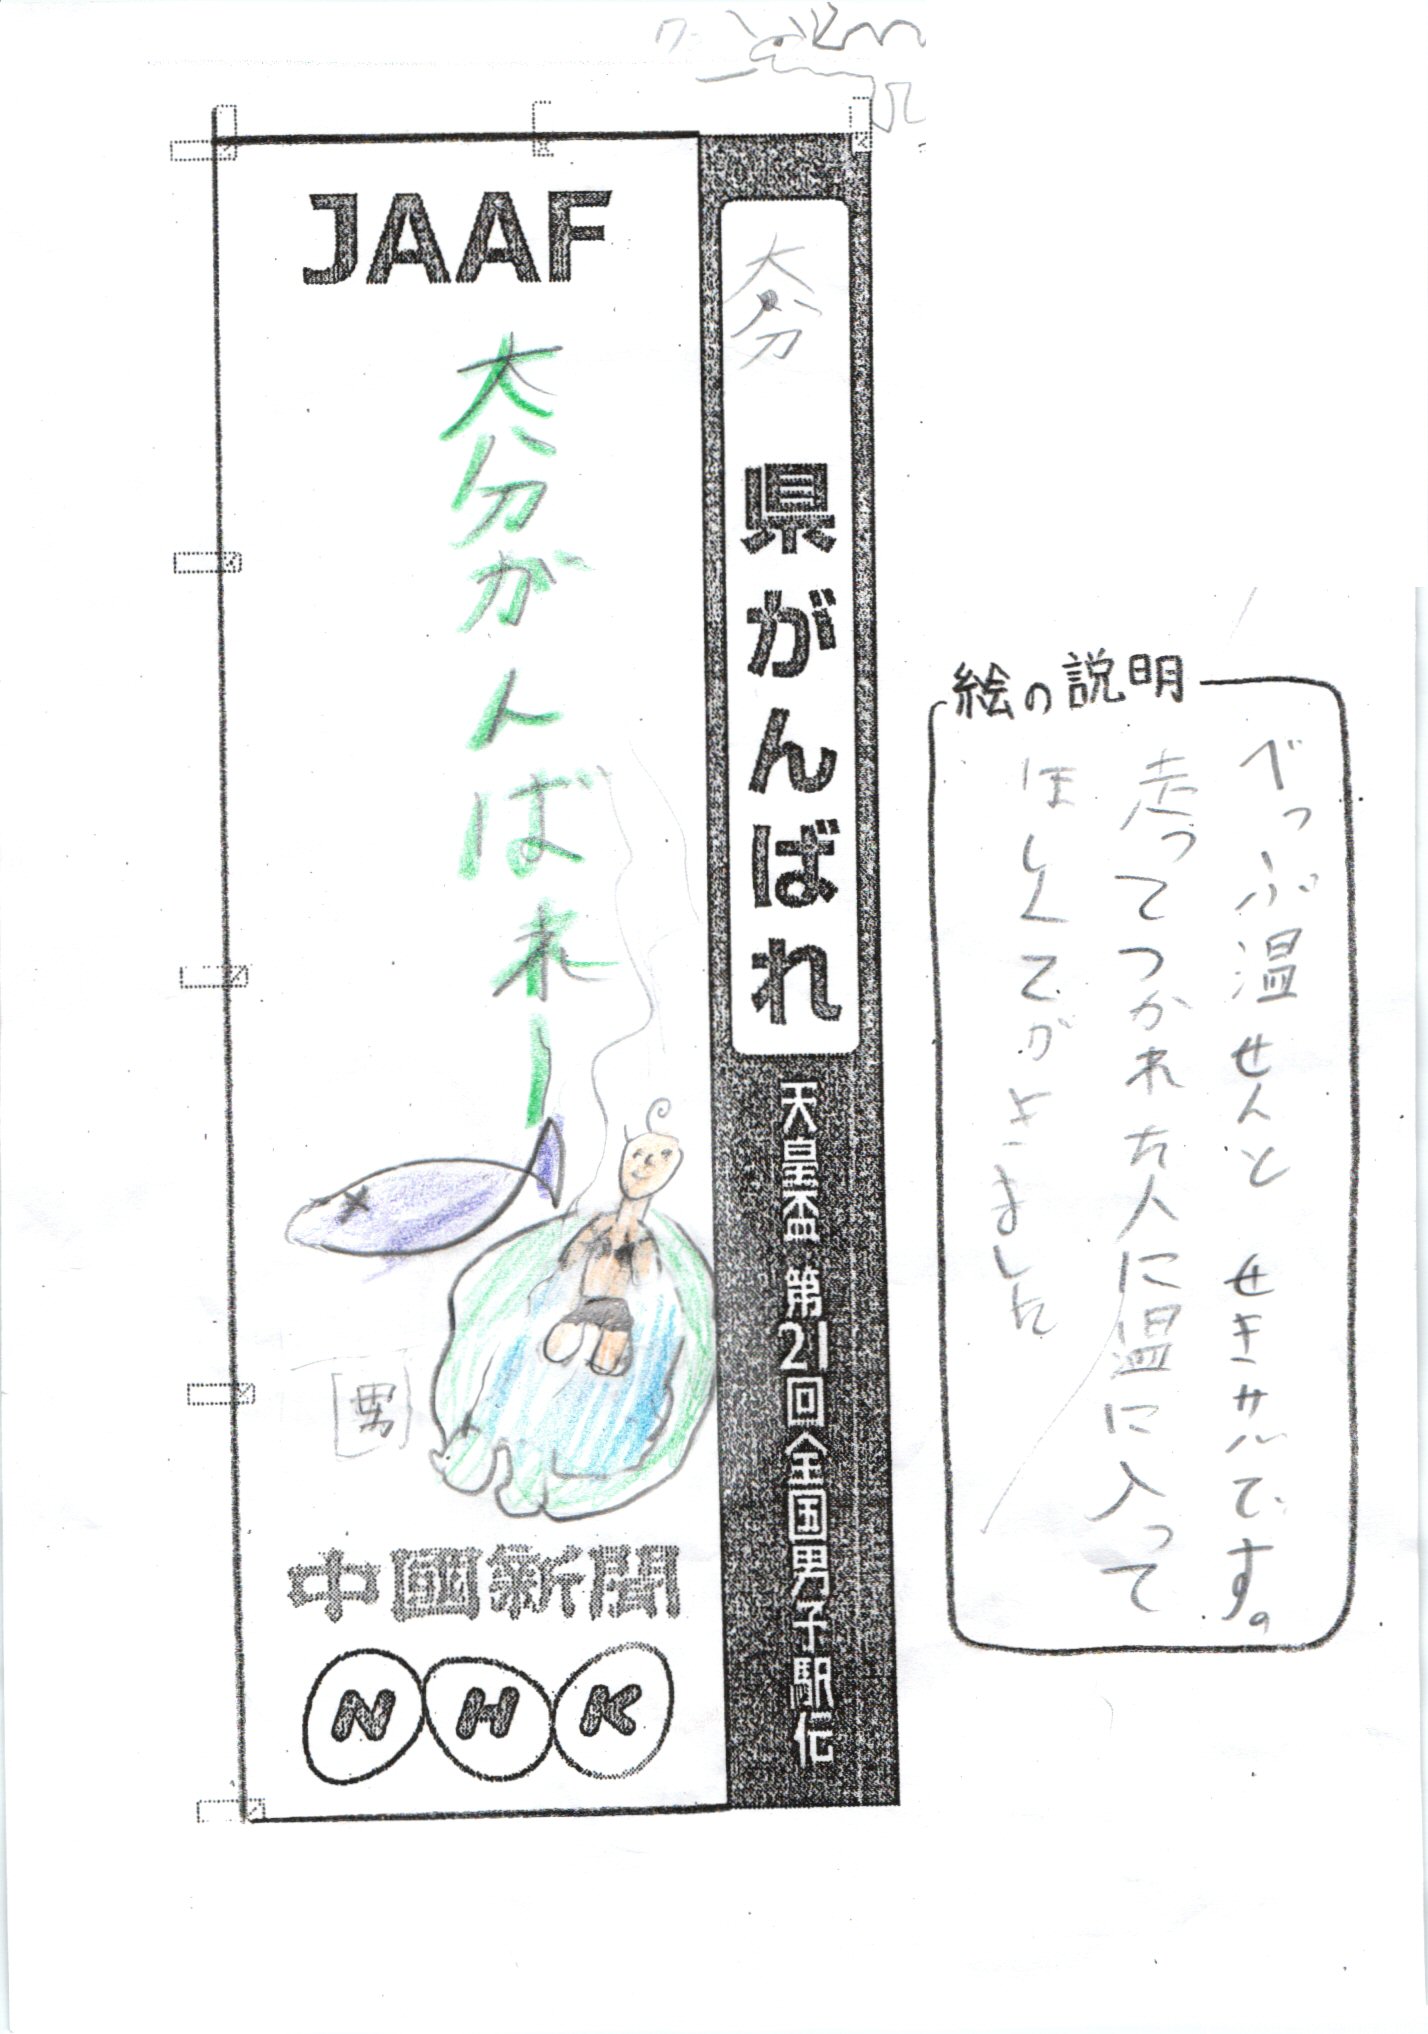 JAAF
大分がんばれー
男
中國新聞
NHK
大分県がんばれ
天皇盃 第21回全国男子駅伝
絵の説明
べっぷ温せんと せきサルです。
走ってつかれた人に温に入って
ほしくてがきました